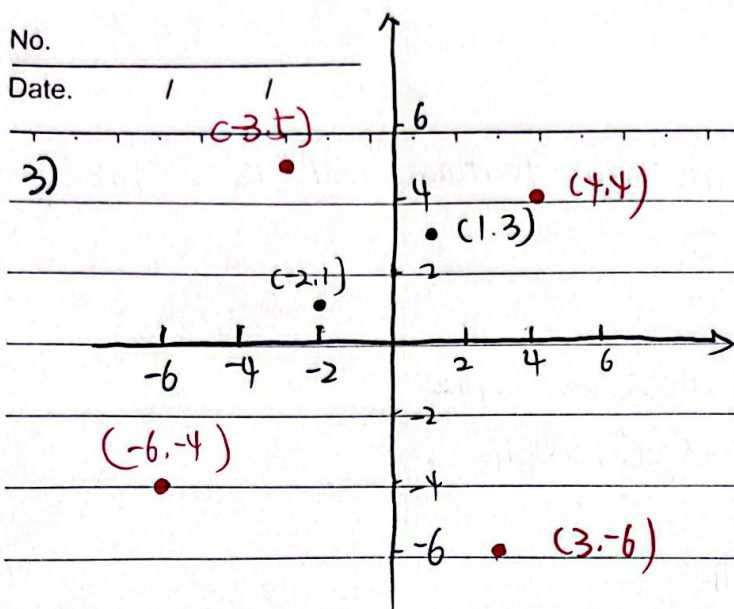 No.
Date. / /
(-3.5)
6
3)
4
(4.4)
(1.3)
2
(-2.1)
-6 -4 -2 2 4 6
-2
(-6.-4)
-4
-6
(3.-6)